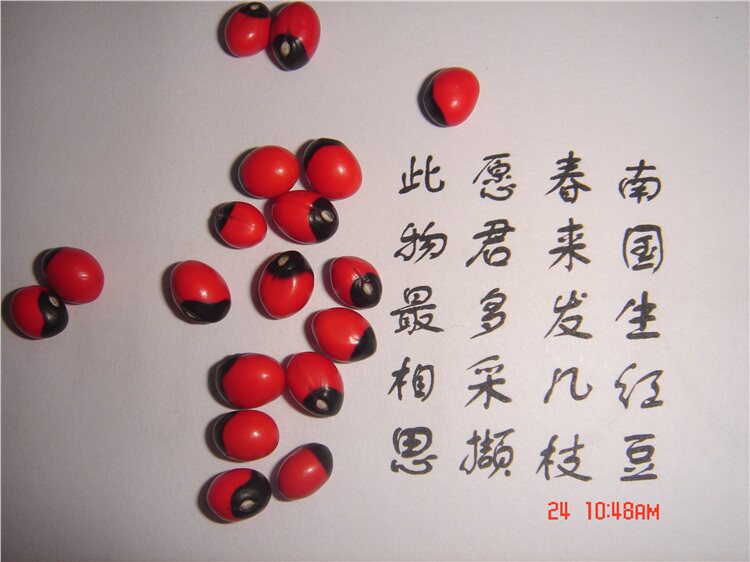 南国生红豆
春来发几枝
愿君多采撷
此物最相思
24 10:48AM